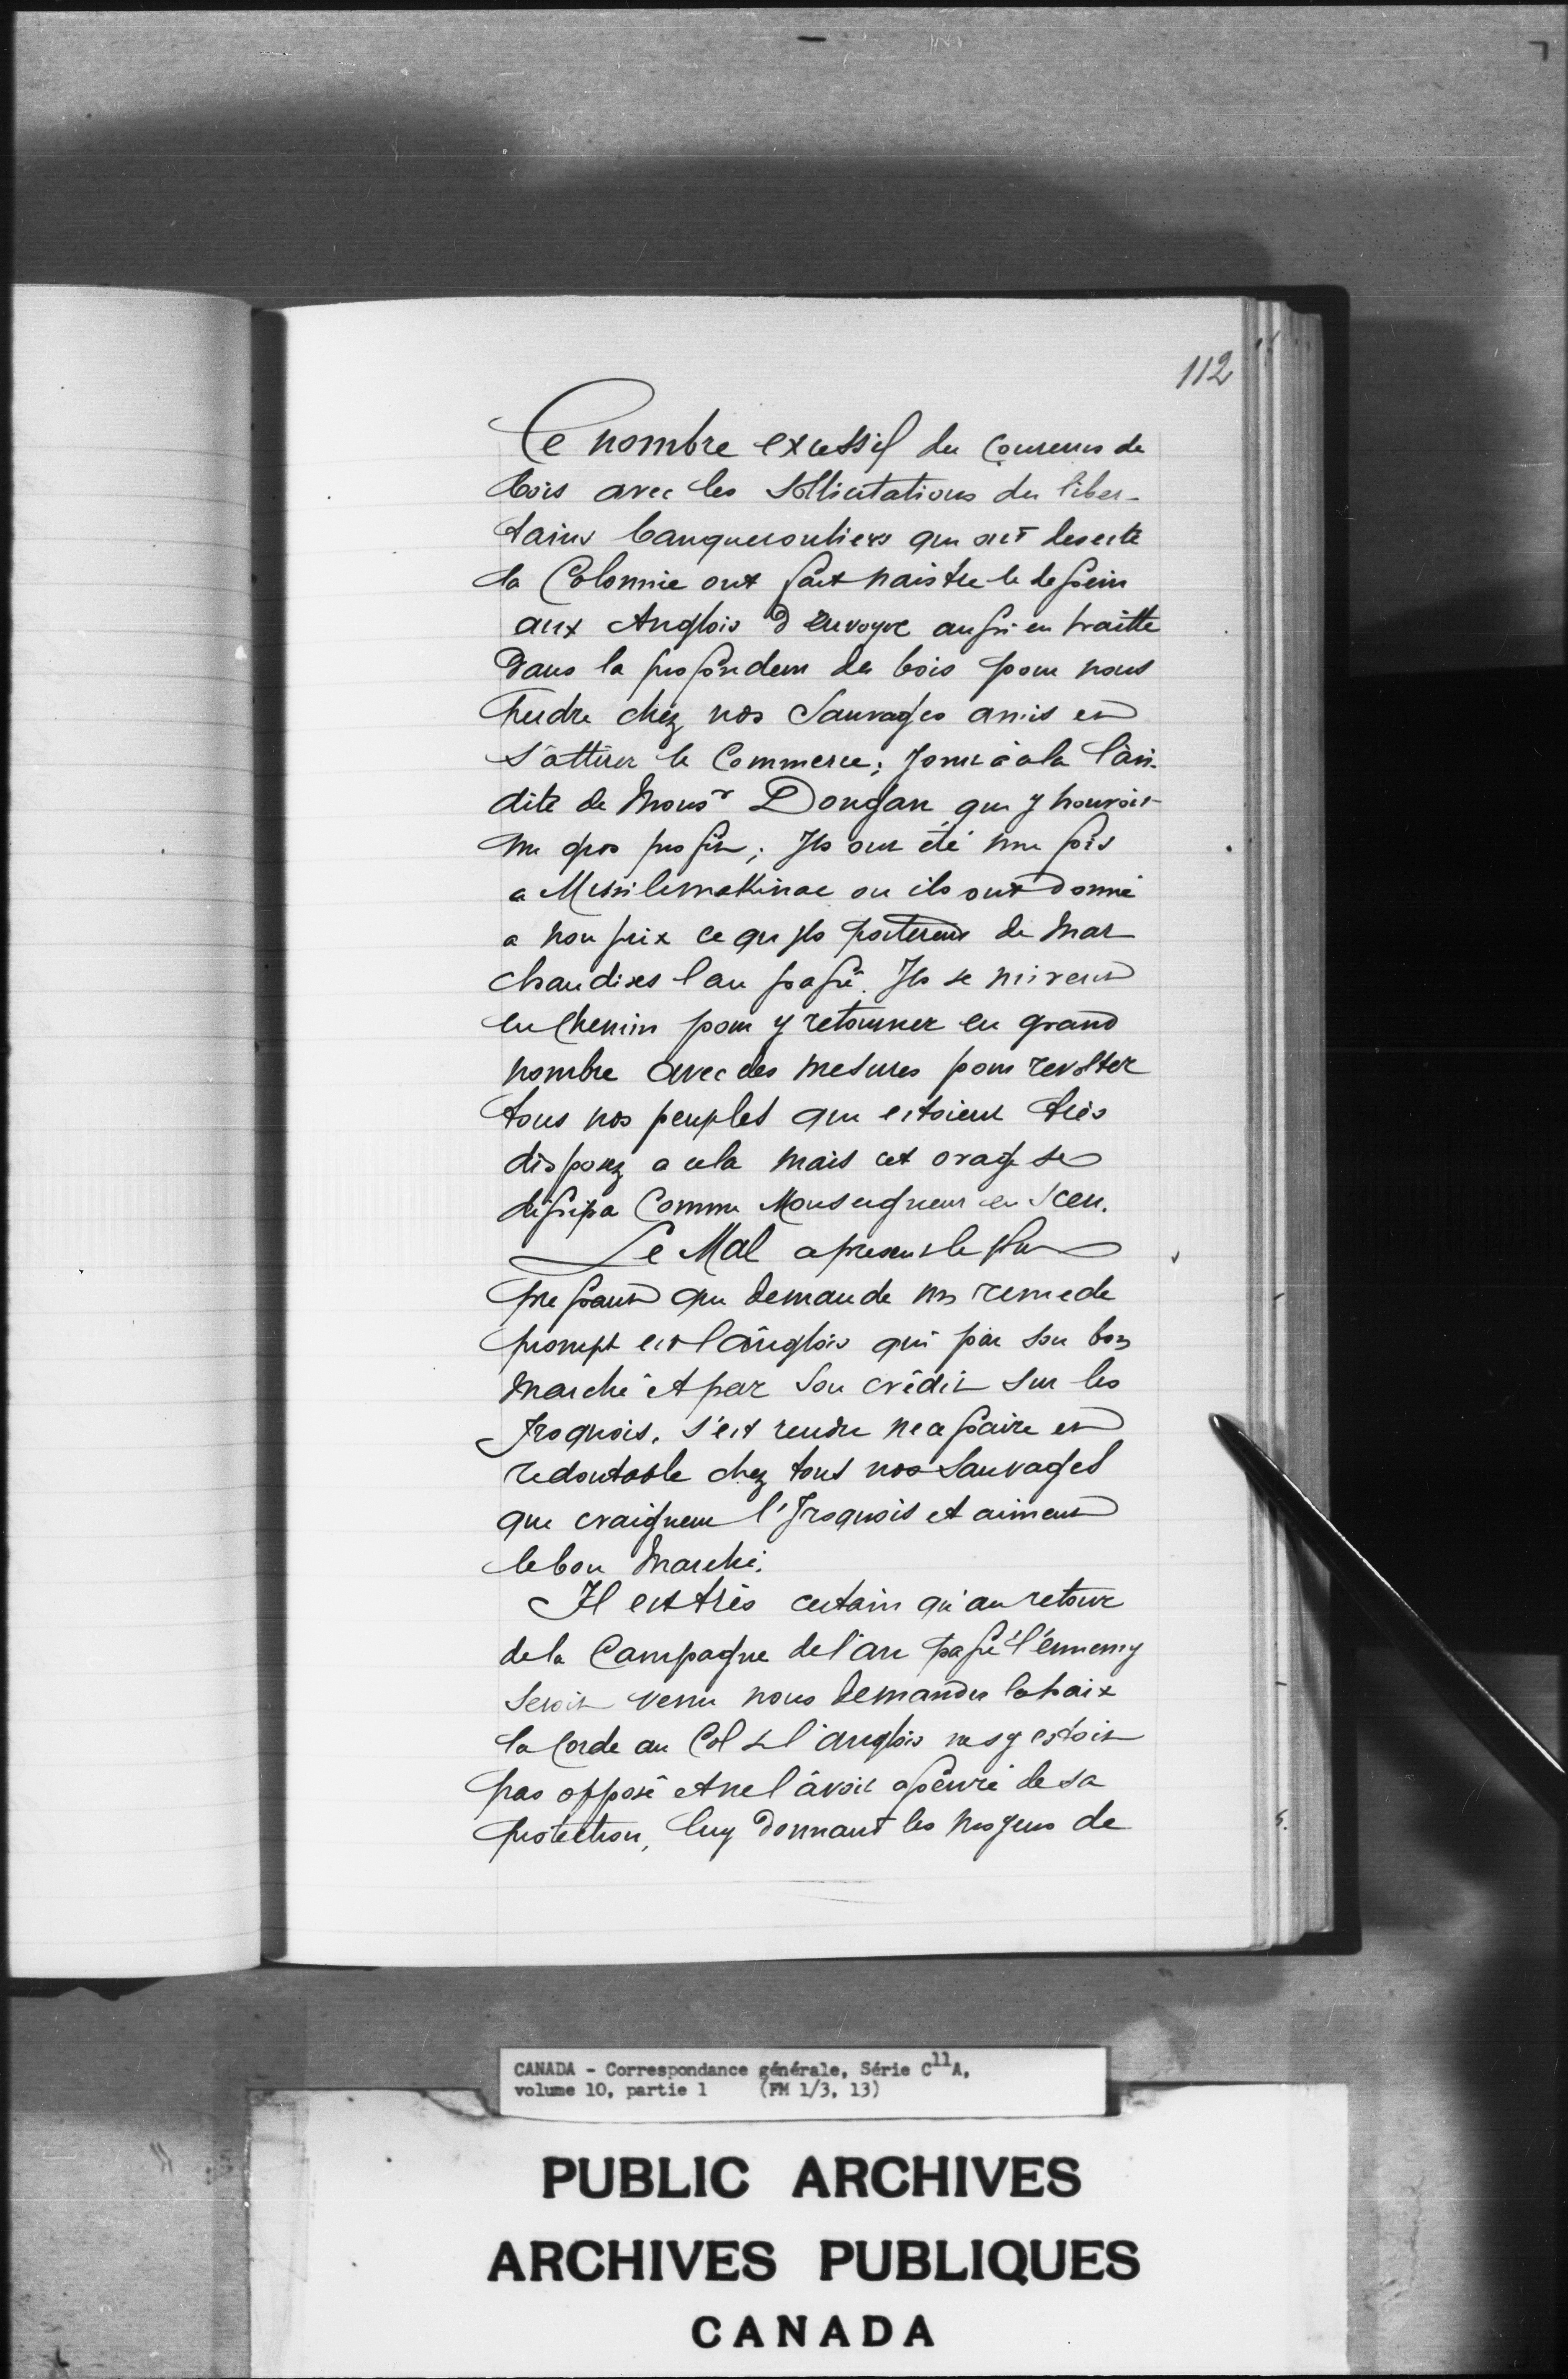 112
Ce nombre excessif des coureurs de
bois avec les sollicitations des liber-
tains banqueroutiers qui ont deserté
la Colonnie ont fait naistre le dessein
aux Anglois d'envoyer aussi en traitte
dans la profondeur des bois pour nous
perdre chéz nos Sauvages amis et
s'attirer le Commerce; Joint à la l'avi-
dité de Monsr Dongan qui y trouvoit
un gros profit; Ils ont été une fois
a Missilimakinac ou ils ont donné
a non prix ce qu'ils porterent de mar
chandises l'an passé. Ils se mirent
en chemin pour y retourner en grand
nombre avec des mesures pour revolter
tous nos peuples qui estoient très
disposez a cela mais cet orage se
dissipa Comme Monseigneur a sceu.
Le Mal a present le plus
pressant qui demande un remede
prompt est l'anglois qui par son bon
marché et par son crédit sur les
Iroquois, s'est rendu necessaire et
redoutable chez tous nos Sauvages
qui craignent l'Iroquois et aiment
le bon marché.
Il est très certain qu'au retour
de la Campagne de l'an passé l'ennemy
seroit venu nous demander la paix
la corde au Col si l'anglois ne s'y estoit
pas opposé et ne l'avoit asseuré de sa
protection, luy donnant les moyens de
CANADA - Correspondance générale, Série C11A,
volume 10, partie 1 (FM 1/3, 13)
PUBLIC ARCHIVES
ARCHIVES PUBLIQUES
CANADA